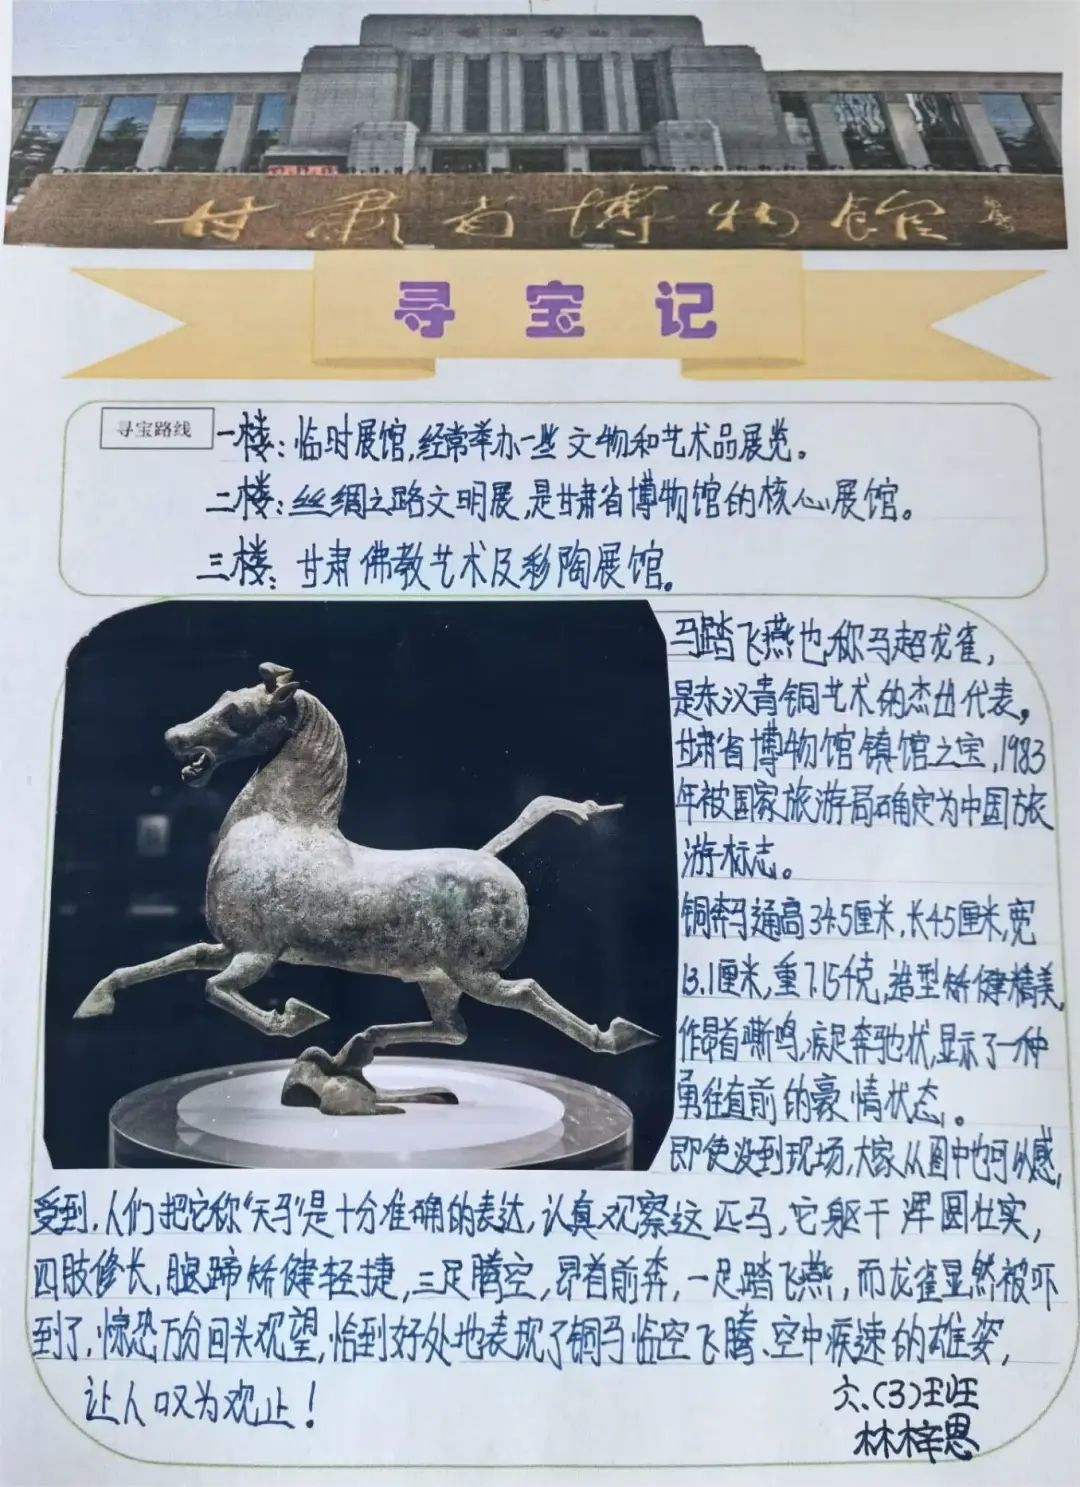 甘肃省博物馆
寻宝记
寻宝路线
一楼：临时展馆，经常举办一些文物和艺术品展览。
二楼：丝绸之路文明展，是甘肃省博物馆的核心展馆。
三楼：甘肃佛教艺术及彩陶展馆。
马踏飞燕也称马超龙雀，
是东汉青铜艺术的杰出代表，
甘肃省博物馆镇馆之宝，1983
年被国家旅游局确定为中国旅
游标志。
铜奔马通高34.5厘米，长45厘米，宽
13.1厘米，重7.15千克，造型矫健精美，
作昂首嘶鸣，疾足奔驰状，显示了一种
勇往直前的豪情状态。
即使没到现场，大家从图中也可以感
受到，人们把它称“天马”是十分准确的表达，认真观察这匹马，它躯干浑圆壮实，
四肢修长，腿蹄矫健轻捷，三足腾空，昂首前奔，一足踏飞燕，而龙雀显然被吓
到了，惊恐万分回头观望，恰到好处地表现了铜马临空飞腾、空中疾速的雄姿，
让人叹为观止！
六、(3)班
林梓恩